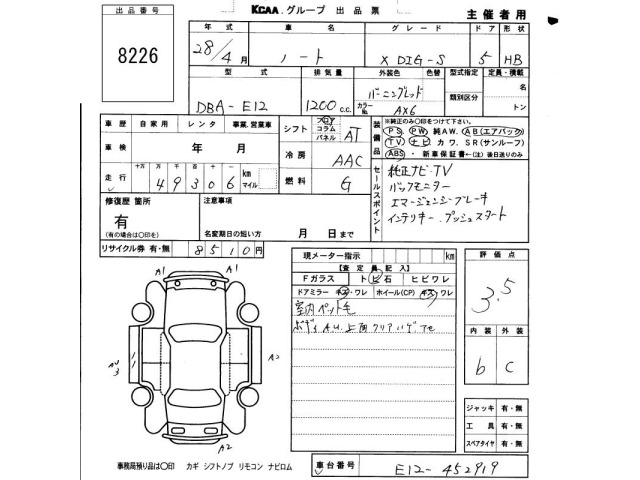 出品番号
KCAA.グループ 出品票
主催者用
8226
年式 車名 グレード ドア 形状
28/4月 ノート X DIG-S 5 HB
型式 排気量 外装色 色替 型式指定 定員・積載
DBA-E12 1200 c.c. バーニングレッド 類別区分 名
カラーNo. AX6 トン
車歴 自家用 レンタ 事業.営業車
シフト フロア コラム パネル AT
装備品
※純正のみ○印をつけて下さい。
PS PW 純AW. AB(エアバック)
TV ナビ カワ. SR(サンルーフ)
ABS ・新車保証書←(注)後日送りのみ
車検 年 月
冷房 AAC
走行 十万 万 千 百 十 km マイル
49306
燃料 G
セールスポイント
純正ナビ・TV
バックモニター
エマージェンシーブレーキ
インテリキー プッシュスタート
修復歴 箇所
有
(有の場合は○印を)
注意事項
名変期日の短い方 月 日まで
リサイクル券 有・無 8510円
現メーター指示 km
【査定員記入】
Fガラス トビ石 ヒビワレ
ドアミラー キズ・ワレ ホイール(CP) キズ・ワレ
室内ペット毛
評価点
3.5
内装 外装
b C
A1 A1
A2
A2
ジャッキ 有・無
工具 有・無
スペアタイヤ 有・無
事務局預り品は○印 カギ シフトノブ リモコン ナビロム
車台番号 E12-452919